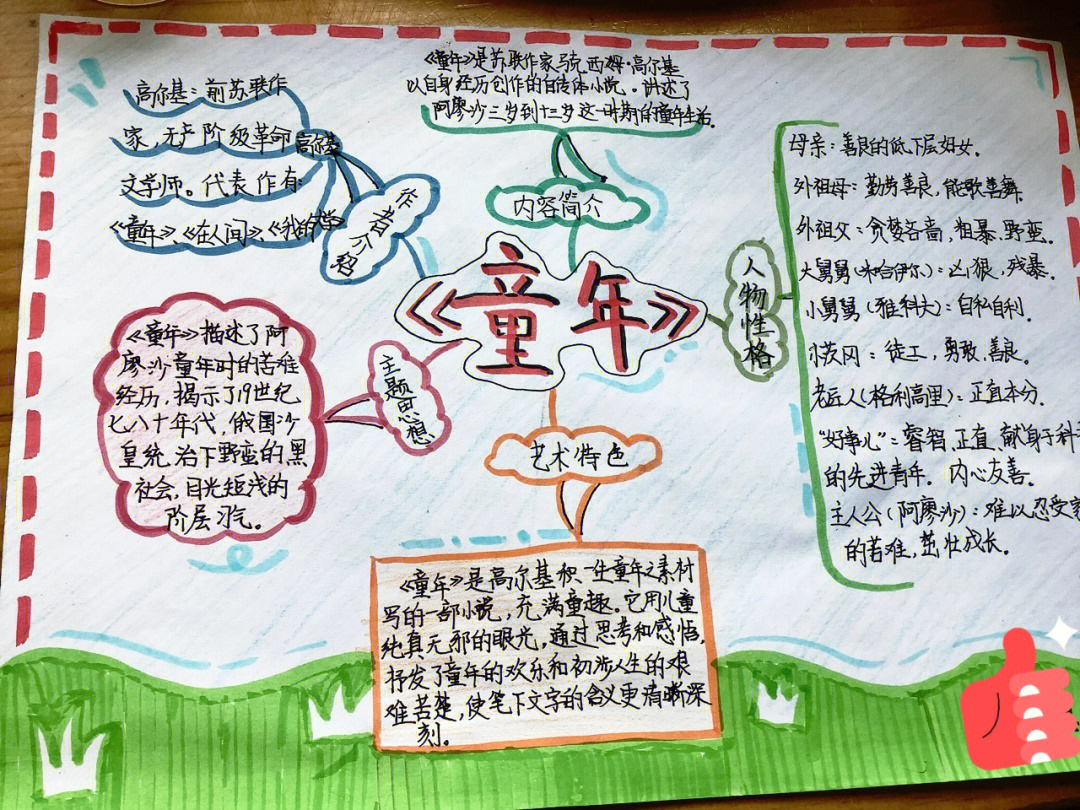 《童年》是苏联作家马克西姆·高尔基
以自身经历创作的自传体小说。讲述了
阿廖沙三岁到十三岁这一时期的童年生活。
内容简介
高尔基：前苏联作
家，无产阶级革命
文学师。代表作有：
《童年》、《在人间》、《我的大学
高尔基
作者介绍
《童年》
人物性格
母亲：善良的低下层妇女。
外祖母：勤劳善良，能歌善舞
外祖父：贪婪吝啬，粗暴、野蛮。
大舅舅（米哈伊尔）：凶狠，残暴。
小舅舅（雅科夫）：自私自利。
小茨冈：徒工，勇敢、善良。
老匠人（格利高里）：正直本分。
“好事儿”：睿智，正直，献身于科
的先进青年。内心友善。
主人公（阿廖沙）：难以忍受
的苦难，茁壮成长。
主题思想
《童年》描述了阿
廖沙童年时的苦难
经历，揭示了19世纪
七八十年代，俄国沙
皇统治下野蛮的黑
社会，目光短浅的
阶层习气。
艺术特色
《童年》是高尔基积一生童年之素材
写的一部小说，充满童趣。它用儿童
纯真无邪的眼光，通过思考和感悟，
抒发了童年的欢乐和初涉人生的艰
难苦楚，使笔下文字的含义更清晰深
刻。